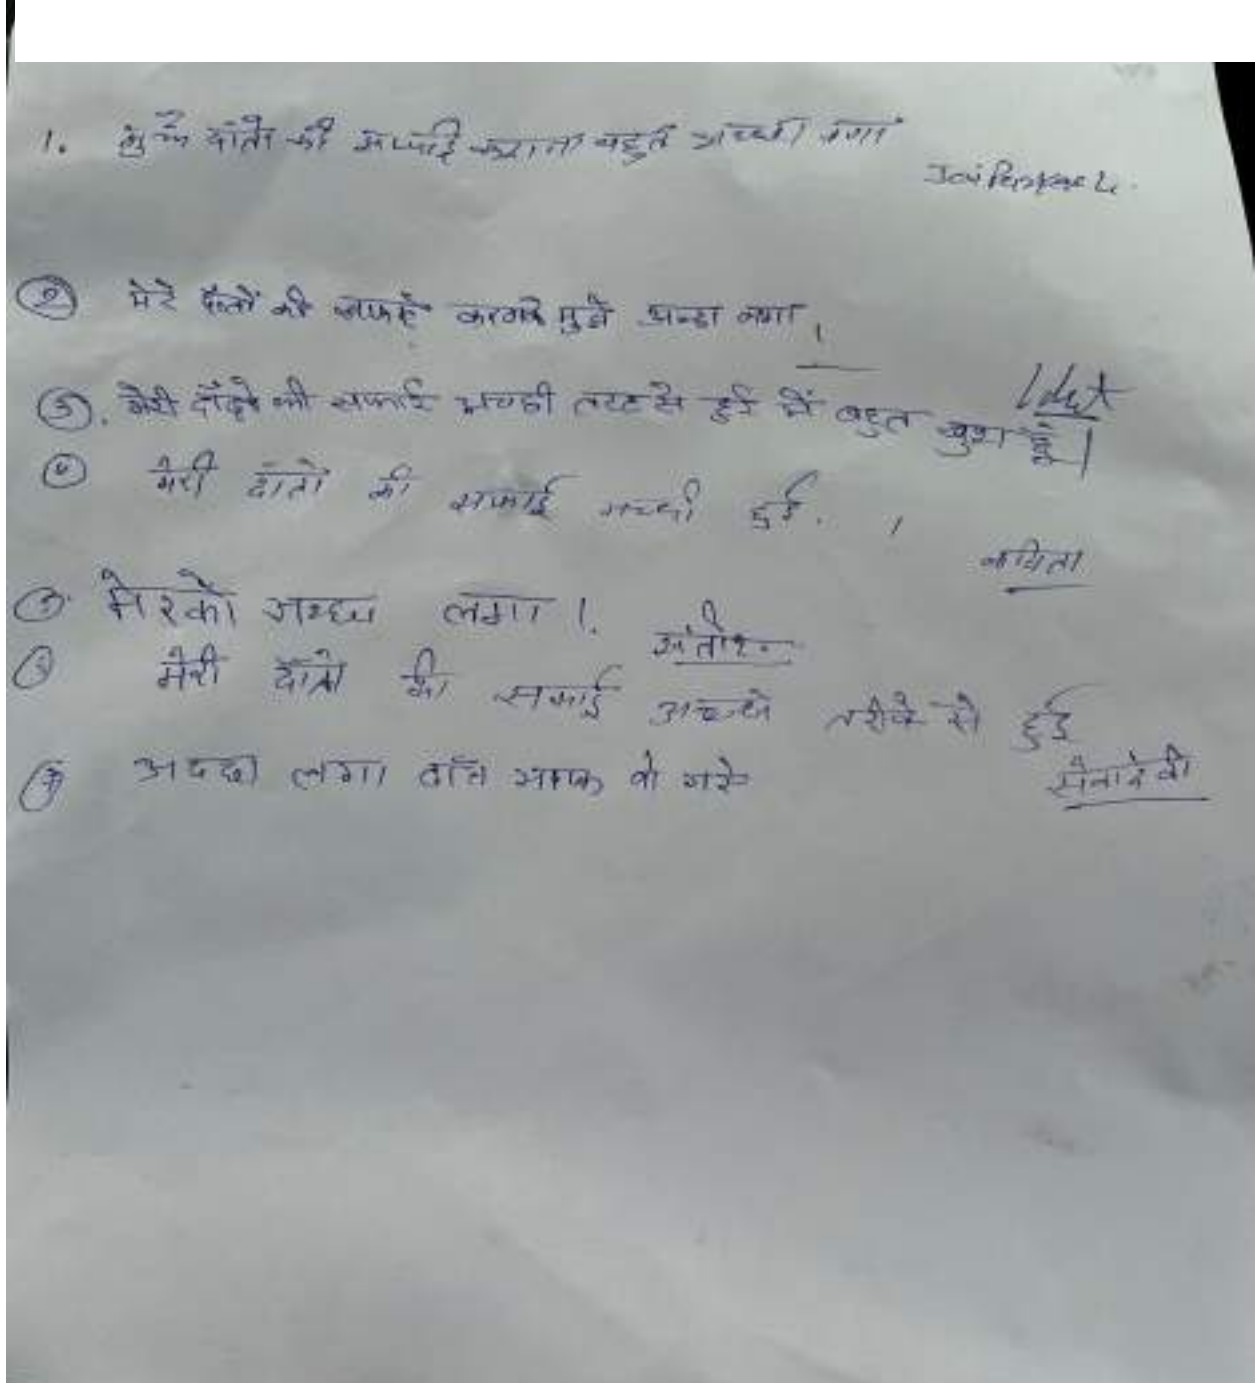 1. मुझे दांतो की सफाई कराना बहुत अच्छा लगा
Jai
② मेरे दाँतों की सफाई करवाके मुझे अच्छा लगा।
③. मेरी दाँतो की सफाई अच्छी तरह से हुई मैं बहुत खुश हूँ।
④ मेरी दांतो की सफाई अच्छी हुई. ।
कविता
मेरको अच्छा लगा।.
मेरी दाँतो की सफाई अच्छे तरीके से हुई
अच्छा लगा दाँत साफ हो गये